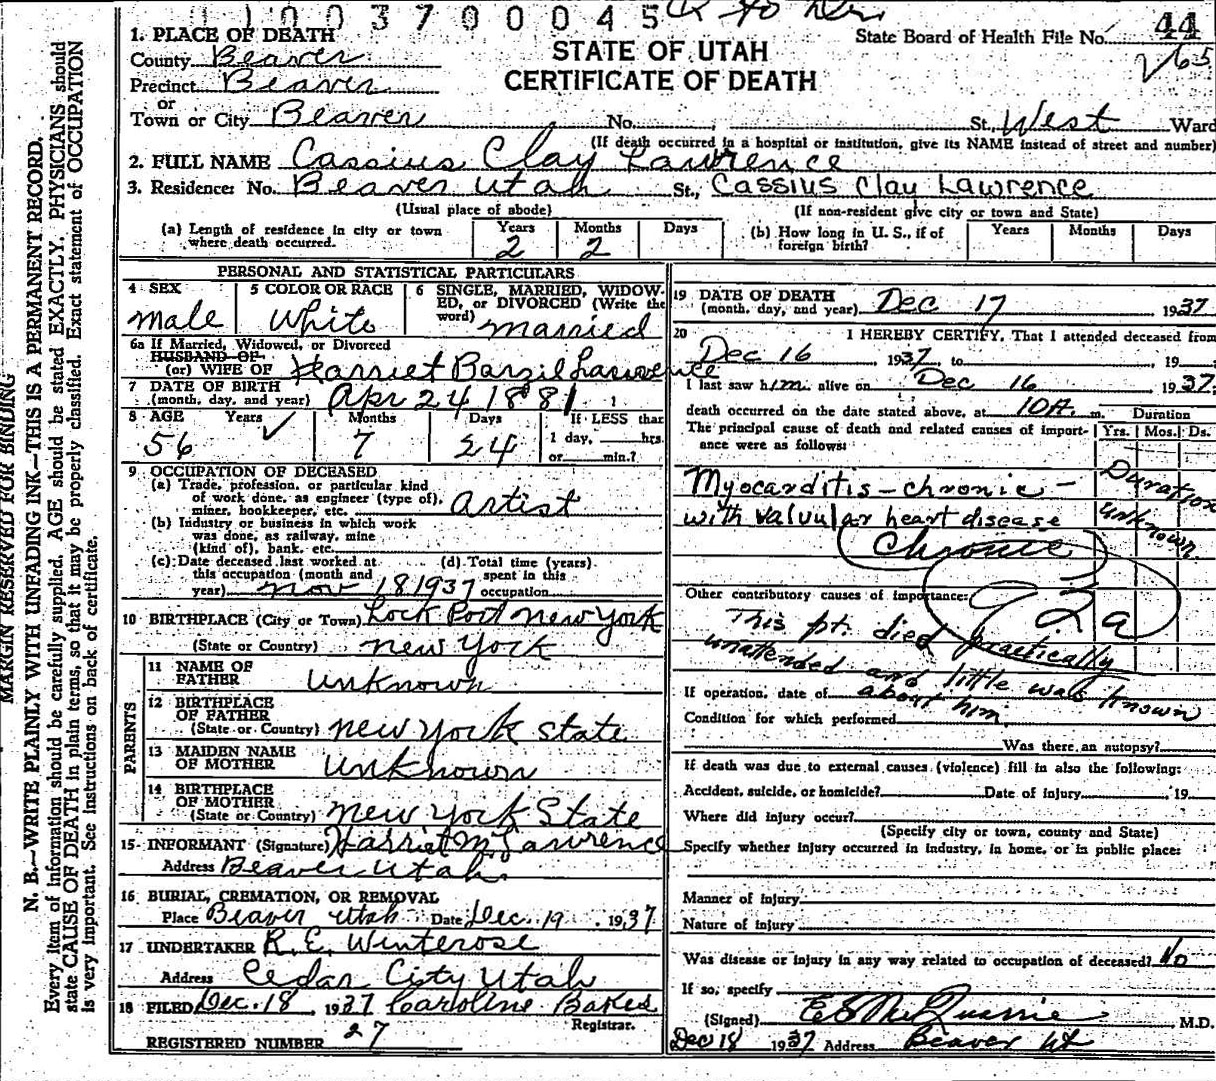 0 1 0 0 3 7 0 0 0 4 5
44
State Board of Health File No.
265
STATE OF UTAH
CERTIFICATE OF DEATH
1. PLACE OF DEATH
County Beaver
Precinct Beaver
or
Town or City Beaver No. St., West Ward
(If death occurred in a hospital or institution, give its NAME instead of street and number)
2. FULL NAME Cassius Clay Lawrence
3. Residence: No. Beaver Utah St., Cassius Clay Lawrence
(Usual place of abode) (If non-resident give city or town and State)
(a) Length of residence in city or town where death occurred. Years 2 Months 2 Days
(b) How long in U. S., if of foreign birth? Years Months Days
PERSONAL AND STATISTICAL PARTICULARS
4 SEX Male
5 COLOR OR RACE White
6 SINGLE, MARRIED, WIDOWED, or DIVORCED (Write the word) married
6a If Married, Widowed, or Divorced
HUSBAND OF
(or) WIFE OF Harriet Lawrence
7 DATE OF BIRTH
(month, day, and year) Apr 24 1881
8 AGE Years 56 Months 7 Days 24
If LESS than
1 day, hrs.
or min.?
9 OCCUPATION OF DECEASED
(a) Trade, profession, or particular kind
of work done, as engineer (type of),
miner, bookkeeper, etc. Artist
(b) Industry or business in which work
was done, as railway, mine
(kind of), bank, etc.
(c) Date deceased last worked at
this occupation (month and
year) Nov 18 1937
(d) Total time (years)
spent in this
occupation
10 BIRTHPLACE (City or Town) Lock Port New York
(State or Country) New York
PARENTS
11 NAME OF FATHER Unknown
12 BIRTHPLACE OF FATHER
(State or Country) New York State
13 MAIDEN NAME OF MOTHER Unknown
14 BIRTHPLACE OF MOTHER
(State or Country) New York State
15 INFORMANT (Signature) Harriet M Lawrence
Address Beaver Utah
16 BURIAL, CREMATION, OR REMOVAL
Place Beaver Utah Date Dec. 19 1937
17 UNDERTAKER R. E. Winterose
Address Cedar City Utah
18 FILED Dec. 18, 1937 Caroline Baker
Registrar.
REGISTERED NUMBER 27
19 DATE OF DEATH
(month, day, and year) Dec 17 1937
20 I HEREBY CERTIFY, That I attended deceased from
Dec 16 1937 to 19
I last saw him alive on Dec 16 1937
death occurred on the date stated above, at 10 A. m.
The principal cause of death and related causes of importance were as follows:
Duration
Yrs. Mos. Ds.
Myocarditis - chronic -
with valvular heart disease
(Chronic)
Duration
unknown
92a
Other contributory causes of importance:
This pt. died practically
unattended and little was known
about him.
If operation, date of
Condition for which performed
Was there an autopsy?
If death was due to external causes (violence) fill in also the following:
Accident, suicide, or homicide? Date of injury 19
Where did injury occur?
(Specify city or town, county and State)
Specify whether injury occurred in industry, in home, or in public place:
Manner of injury
Nature of injury
Was disease or injury in any way related to occupation of deceased? No
If so, specify
(Signed) M.D.
Dec 18 1937 Address Beaver Ut
MARGIN RESERVED FOR BINDING
N. B.—WRITE PLAINLY WITH UNFADING INK—THIS IS A PERMANENT RECORD.
Every item of information should be carefully supplied. AGE should be stated EXACTLY. PHYSICIANS should
state CAUSE OF DEATH in plain terms, so that it may be properly classified. Exact statement of OCCUPATION
is very important. See instructions on back of certificate.